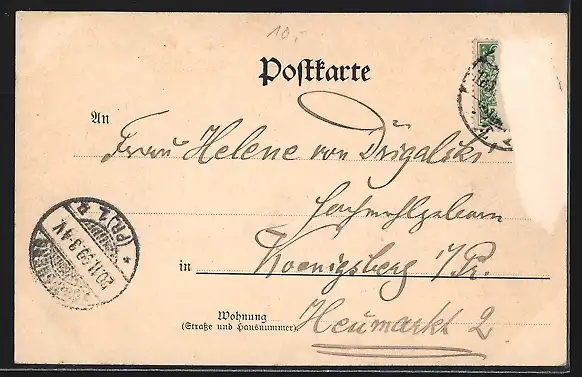 10,-
Postkarte
An
Frau Helene von Drigalski
Hochwohlgeboren
in Koenigsberg i/Pr.
Wohnung
(Straße und Hausnummer)
Heumarkt 2
(PR) 1. R
20.11.99.3-4V.